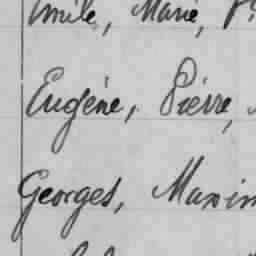 Emile, Marie,
Eugène, Pierre,
Georges, Maxim